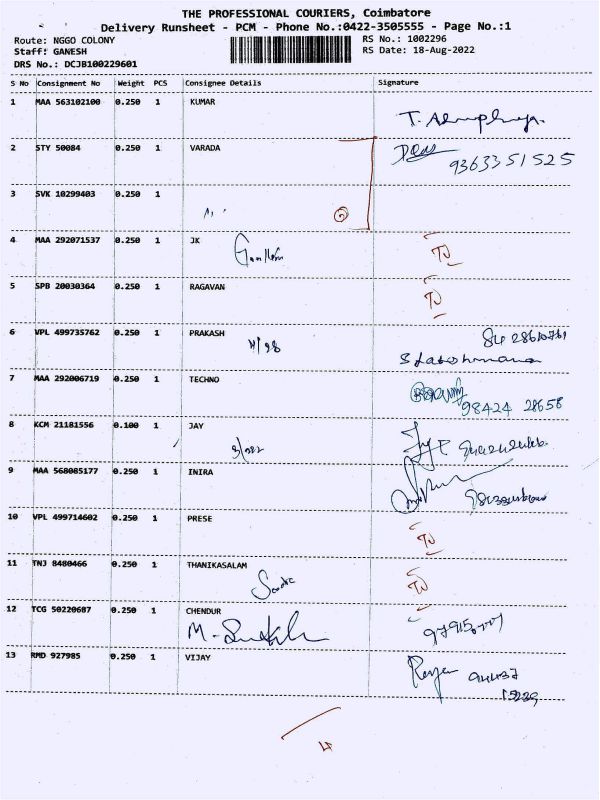 THE PROFESSIONAL COURIERS, Coimbatore
Delivery Runsheet - PCM - Phone No.:0422-3505555 - Page No.:1
Route: NGGO COLONY RS No.: 1002296
Staff: GANESH RS Date: 18-Aug-2022
DRS No.: DCJB100229601
S No Consignment No Weight PCS Consignee Details Signature
1 MAA 563102100 0.250 1 KUMAR
2 STY 50084 0.250 1 VARADA
9363351525
3 SVK 10299403 0.250 1
2
4 MAA 292071537 0.250 1 JK
5 SPB 20030364 0.250 1 RAGAVAN
6 VPL 499735762 0.250 1 PRAKASH
4/98
7 MAA 292006719 0.250 1 TECHNO
98424 28658
8 KCM 21181556 0.100 1 JAY
9 MAA 568085177 0.250 1 INIRA
10 VPL 499714602 0.250 1 PRESE
11 TNJ 8480466 0.250 1 THANIKASALAM
12 TCG 50220687 0.250 1 CHENDUR
13 RMD 927985 0.250 1 VIJAY
94437